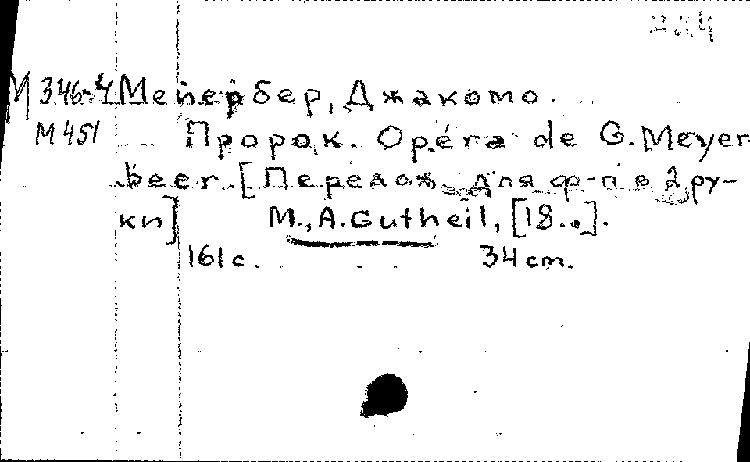 М 346-4 Мейербер, Джакомо.
М 451 Пророк. Opéra de G. Meyer
beer. [Перелож. для ф-п в 2 ру-
ки] M., A. Gutheil, [18..].
161 с. 34 cm.